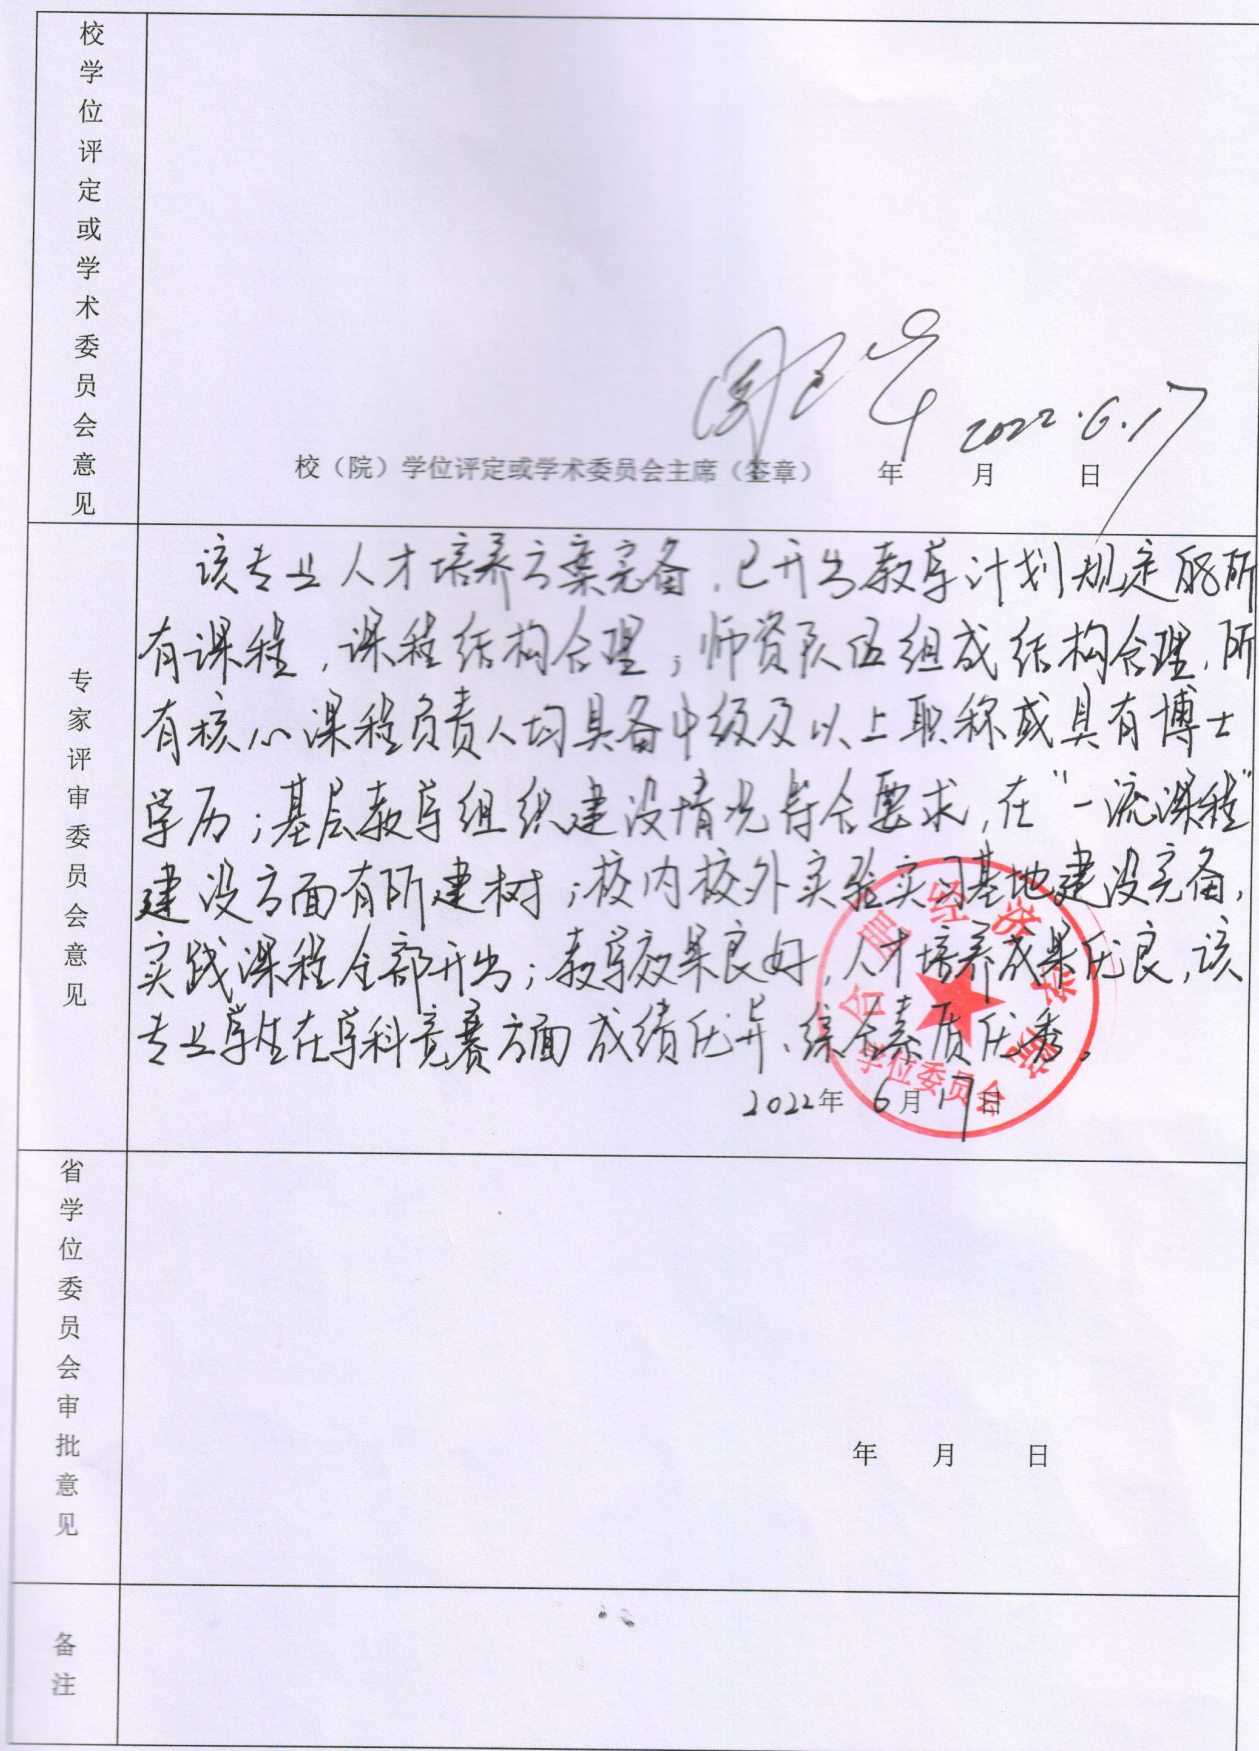 校学位评定或学术委员会意见
2022.6.17
校（院）学位评定或学术委员会主席（签章） 年 月 日
专家评审委员会意见
该专业人才培养方案完备，已开出教学计划规定的所
有课程，课程结构合理；师资队伍组成结构合理，所
有核心课程负责人均具备中级及以上职称或具有博士
学历；基层教学组织建设情况符合要求，在“一流课程”
建设方面有所建树；校内校外实验实习基地建设完备，
实践课程全部开出；教学效果良好，人才培养成果优良，该
专业学生在学科竞赛方面成绩优异、综合素质优秀。
2022年 6月17日
合肥经济学院
学位委员会
省学位委员会审批意见
年 月 日
备注